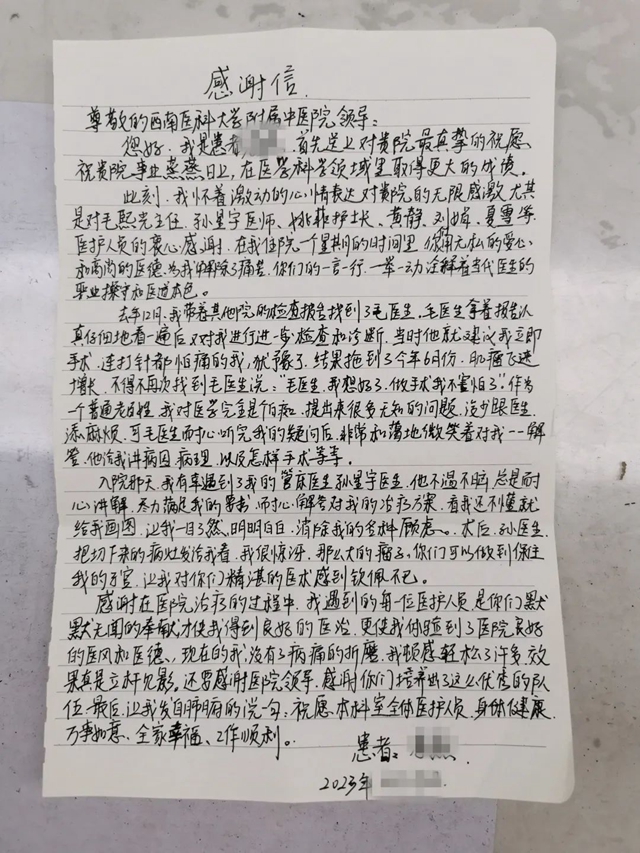 感谢信
尊敬的西南医科大学附属中医院领导:
您好,我是患者 首先送上对贵院最真挚的祝愿
祝贵院事业蒸蒸日上,在医学科学领域里取得更大的成绩。
此刻,我怀着激动的心情表达对贵院的无限感激尤其
是对毛熙光主任、孙星宇医师、姚菲护士长、黄静、刘婷、夏雪等
医护人员的衷心感谢。在我住院一个星期的时间里你们用无私的爱心
和高尚的医德,为我解除了痛苦,你们的一言一行,一举一动诠释着当代医生的
职业操守和医道本色。
去年12月,我带着其他院的检查报告找到了毛医生,毛医生拿着报告认
真仔细地看一遍后又对我进行进一步检查和诊断,当时他就建议我立即
手术,连打针都怕痛的我,犹豫了,结果拖到了今年6月份,肌瘤飞速
增长,不得不再次找到毛医生说:“毛医生,我想好了,做手术我不害怕了。”作为
一个普通老百姓,我对医学完全是个白痴,提出来很多无知的问题,没少跟医生
添麻烦,可毛医生耐心听完我的疑问后,非常和蔼地微笑着对我一一解
答,他给我讲病因,病理,以及怎样手术等等。
入院那天,我有幸遇到了我的管床医生孙星宇医生,他不温不躁总是耐
心讲解,尽力满足我的要求,耐心解答对我的治疗方案,看我还不懂就
给我画图,让我一目了然,明明白白,消除我的各种顾虑。术后,孙医生
把切下来的病灶发给我看,我很惊讶,那么大的瘤子,你们可以做到保住
我的子宫,让我对你们精湛的医术感到钦佩不已。
感谢在医院治疗的过程中,我遇到的每一位医护人员,是你们默
默无闻的奉献才使我得到良好的医治,更使我体验到了医院良好
的医风和医德,现在的我,没有了病痛的折磨,我顿感轻松了许多,效
果真是立杆见影。还要感谢医院领导,感谢你们培养出了这么优秀的队
伍,最后,让我发自肺腑的说一句,祝愿本科室全体医护人员,身体健康,
万事如意、全家幸福、工作顺利。
患者:
2023年